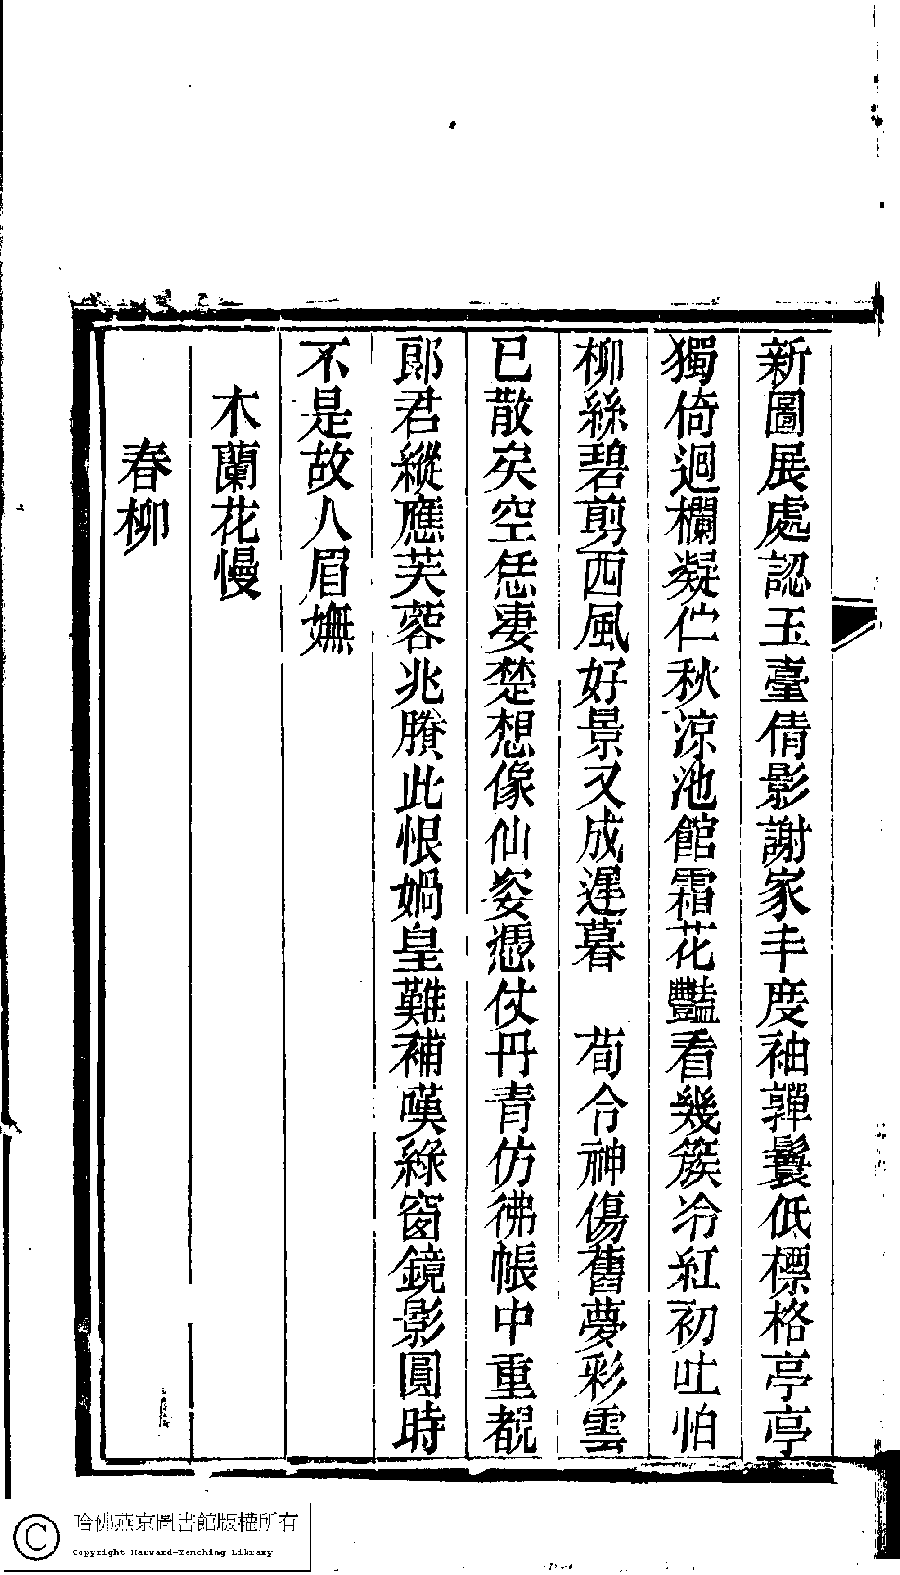 新圖展處認玉臺倩影謝家丰度袖嚲鬟低標格亭亭
獨倚迴欄凝伫秋涼池館霜花豔看幾簇冷紅初吐怕
柳絲碧剪西風好景又成遲暮　荀令神傷舊夢彩雲
已散矣空恁淒楚想像仙姿憑仗丹青仿彿帳中重覩
郞君縱應芙蓉兆賸此恨媧皇難補嘆綠窗鏡影圓時
不是故人眉嫵
木蘭花慢
春柳
哈佛燕京圖書館版權所有
Copyright Harvard-Yenching Library